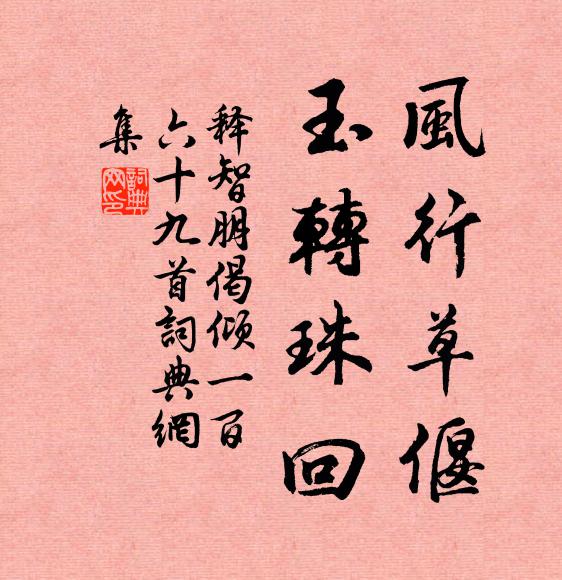 風行草偃
玉轉珠回
释智朋偈傾一百
六十九首詞典網
集
詞典
网印